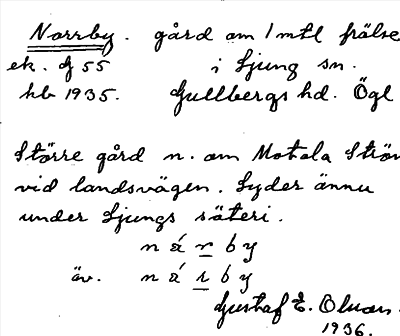 Norrby. gård om 1 mtl frälse
ek. bl 55 i Ljung sn.
hb 1935. Gullbergs hd. Ögl
Större gård n. om Motala Ström
vid landsvägen. Lyder ännu
under Ljungs säteri.
n á r b y
äv. n á r b y
Gustaf E. Olsson.
1936.